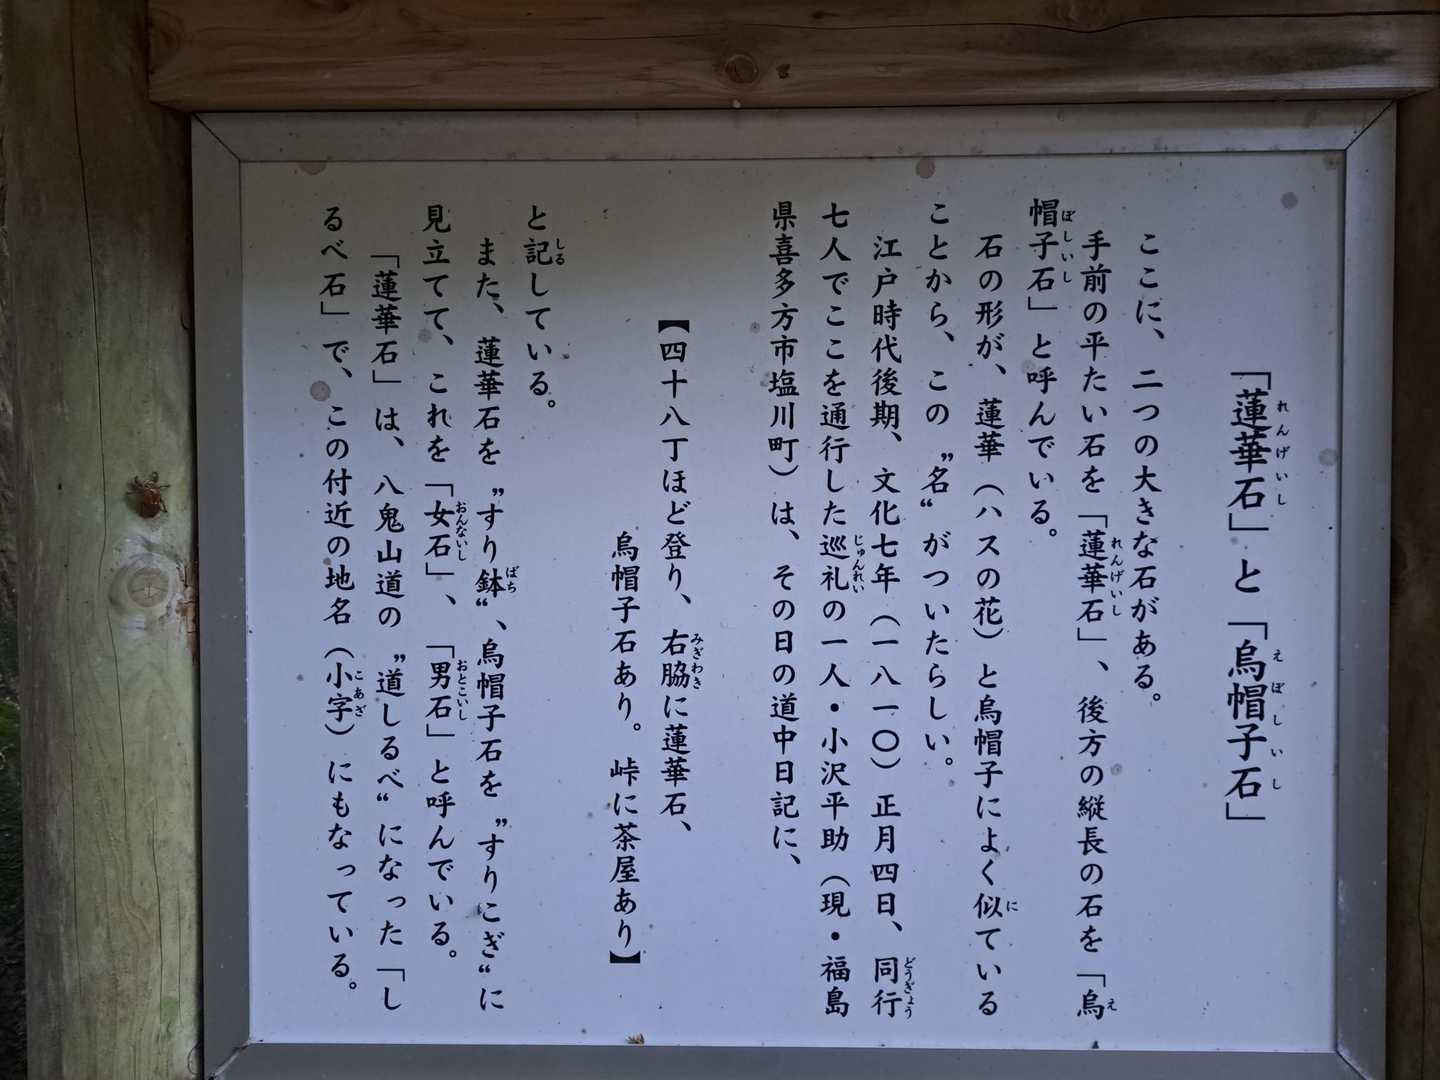 「蓮華石」と「烏帽子石」
ここに、二つの大きな石がある。
手前の平たい石を「蓮華石」、後方の縦長の石を「烏
帽子石」と呼んでいる。
石の形が、蓮華（ハスの花）と烏帽子によく似ている
ことから、この〝名〟がついたらしい。
江戸時代後期、文化七年（一八一〇）正月四日、同行
七人でここを通行した巡礼の一人・小沢平助（現・福島
県喜多方市塩川町）は、その日の道中日記に、
【四十八丁ほど登り、右脇に蓮華石、
烏帽子石あり。峠に茶屋あり】
と記している。
また、蓮華石を〝すり鉢〟、烏帽子石を〝すりこぎ〟に
見立てて、これを「女石」、「男石」と呼んでいる。
「蓮華石」は、八鬼山道の〝道しるべ〟になった「し
るべ石」で、この付近の地名（小字）にもなっている。